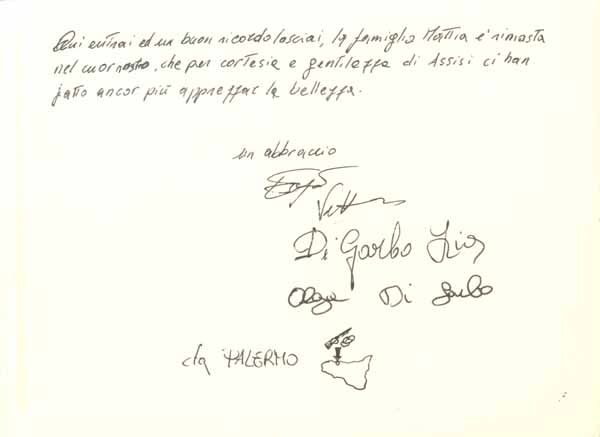 Qui entrai ed un buon ricordo lasciai, la famiglia Mattia è rimasta
nel cuor nostro, che per cortesia e gentilezza di Assisi ci han
fatto ancor più apprezzar la bellezza.
un abbraccio
Di Garbo
Olga Di Garbo
da PALERMO